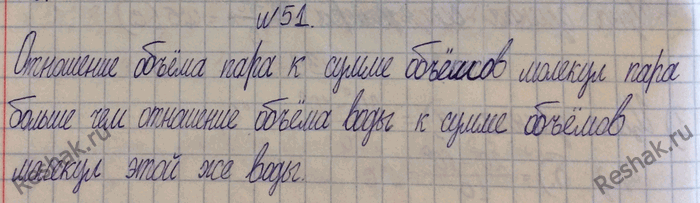 №51.
Отношение объёма пара к сумме объёмов молекул пара
больше чем отношение объёма воды к сумме объёмов
молекул этой же воды.
Reshak.ru
Reshak.ru